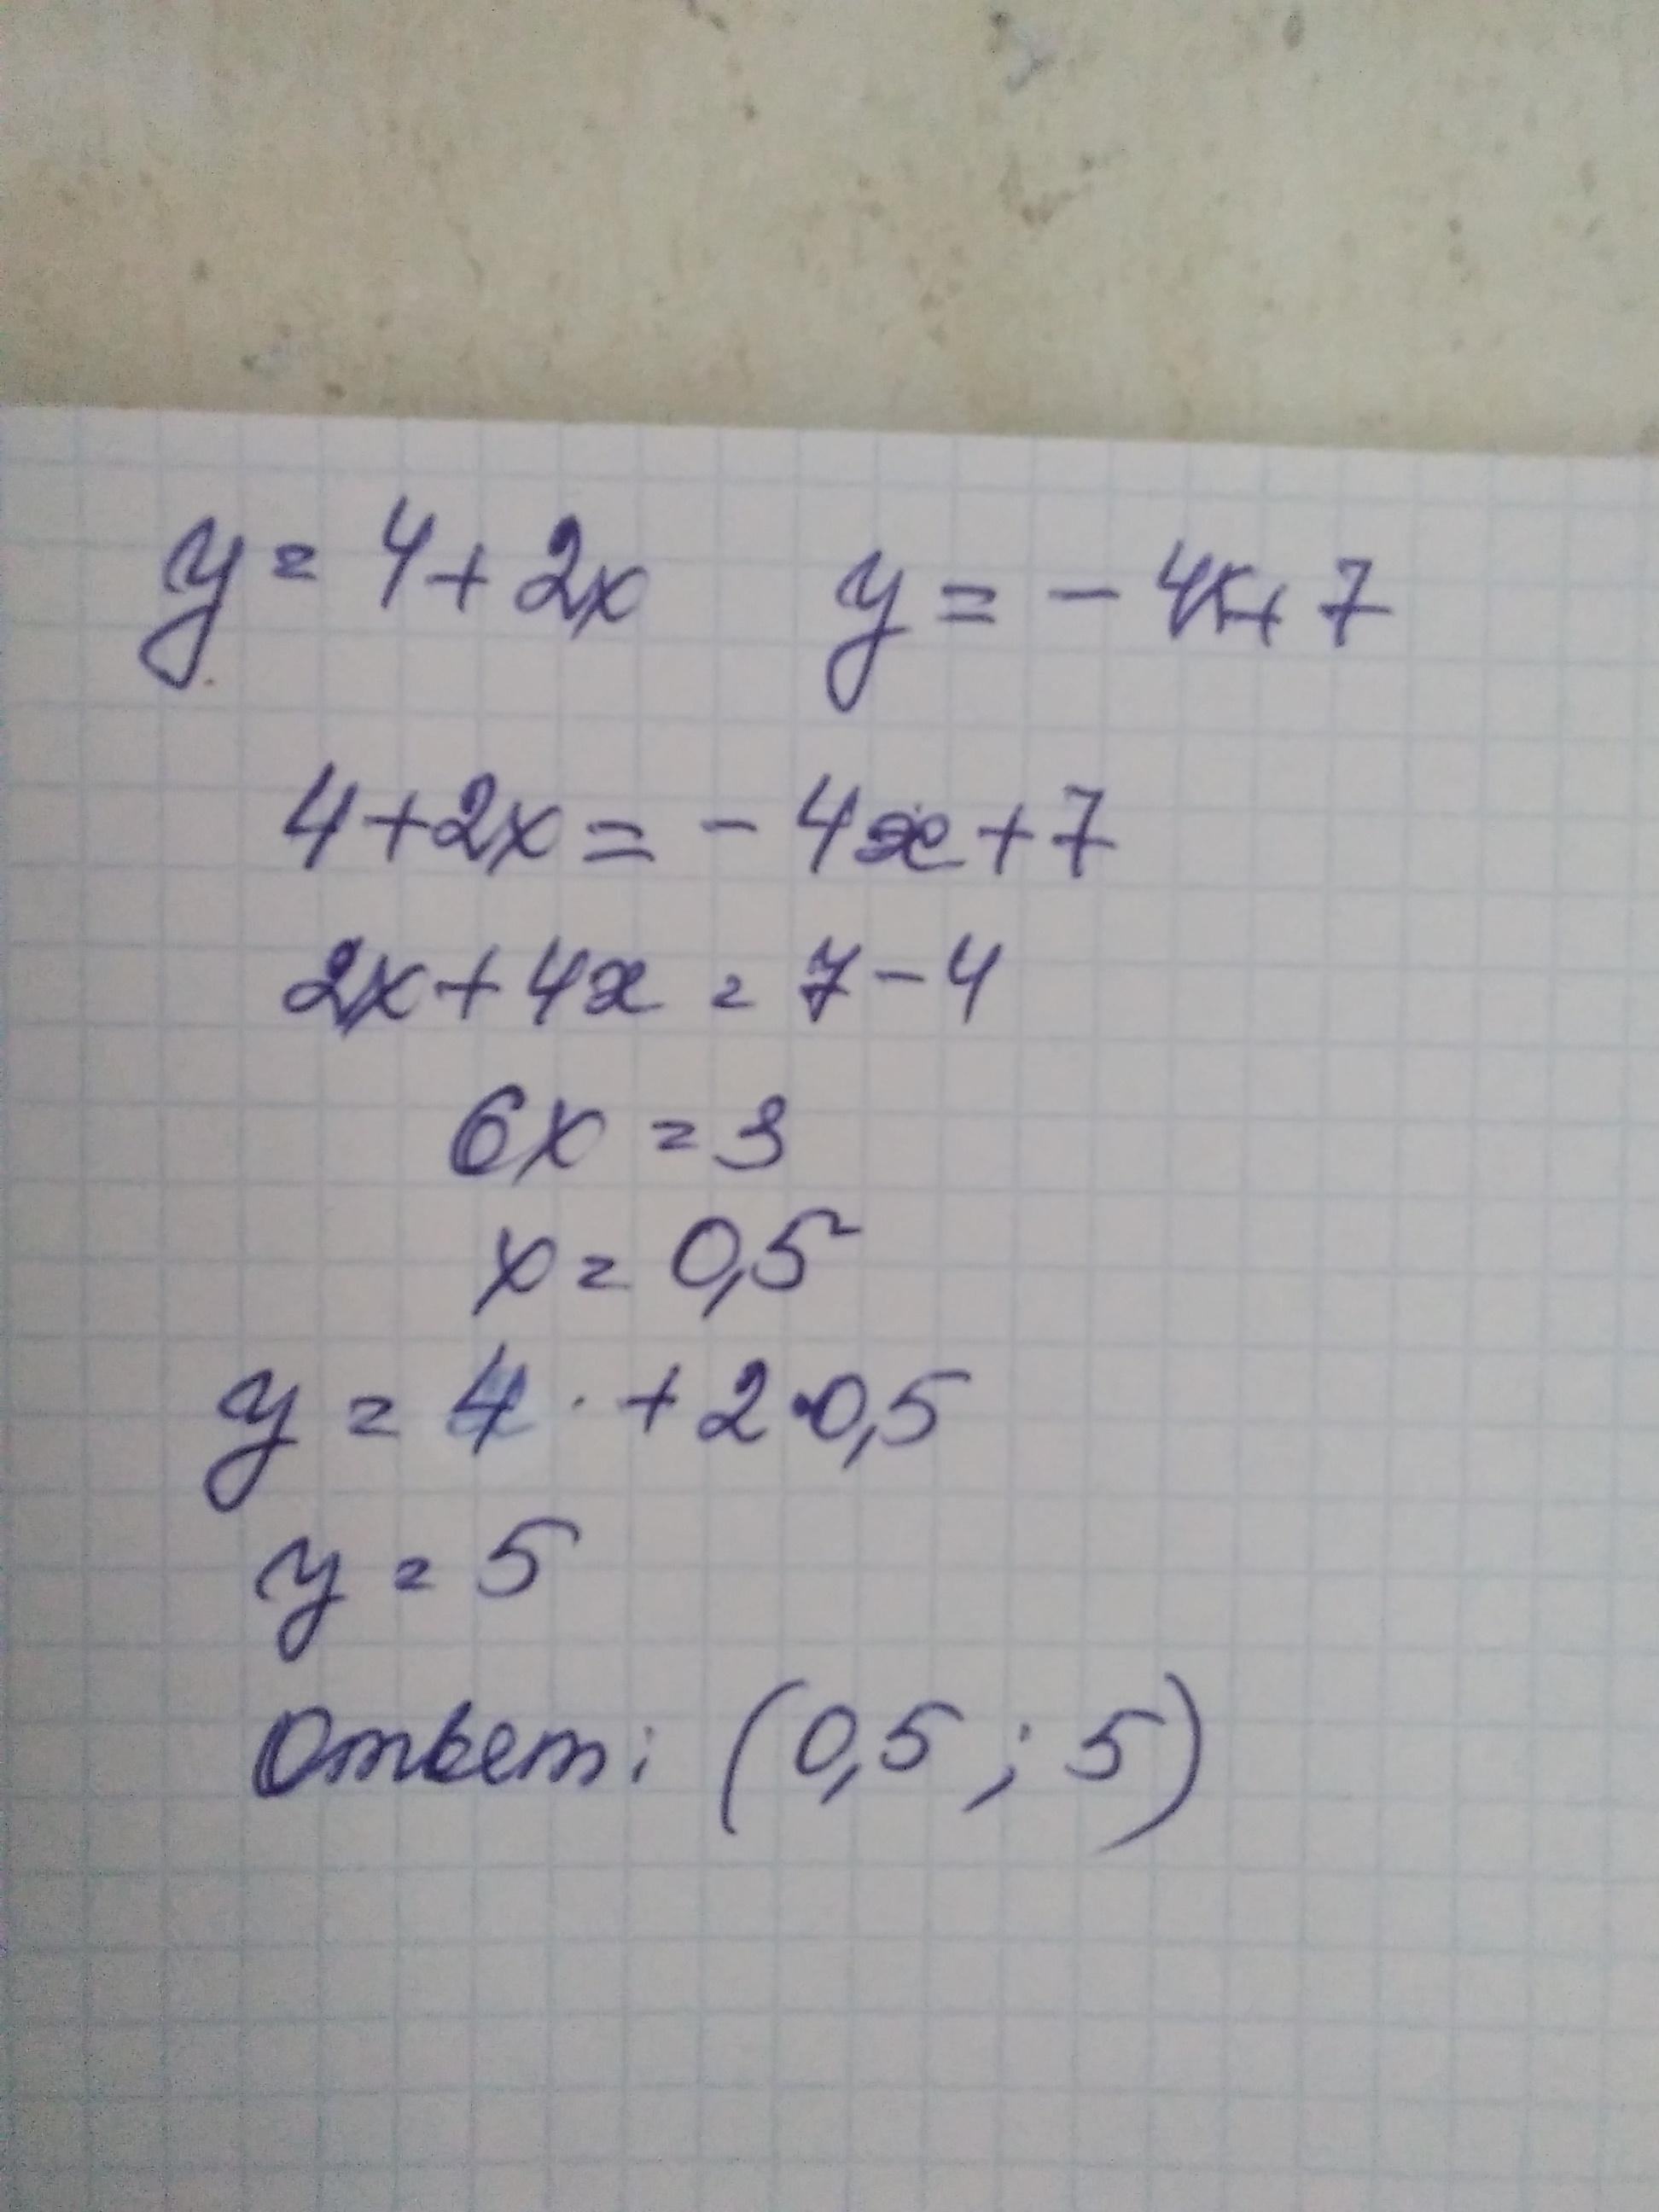 y = 4 + 2x y = - 4x + 7
4 + 2x = - 4x + 7
2x + 4x = 7 - 4
6x = 3
x = 0,5
y = 4 · + 2 · 0,5
y = 5
Ответ: (0,5 ; 5)